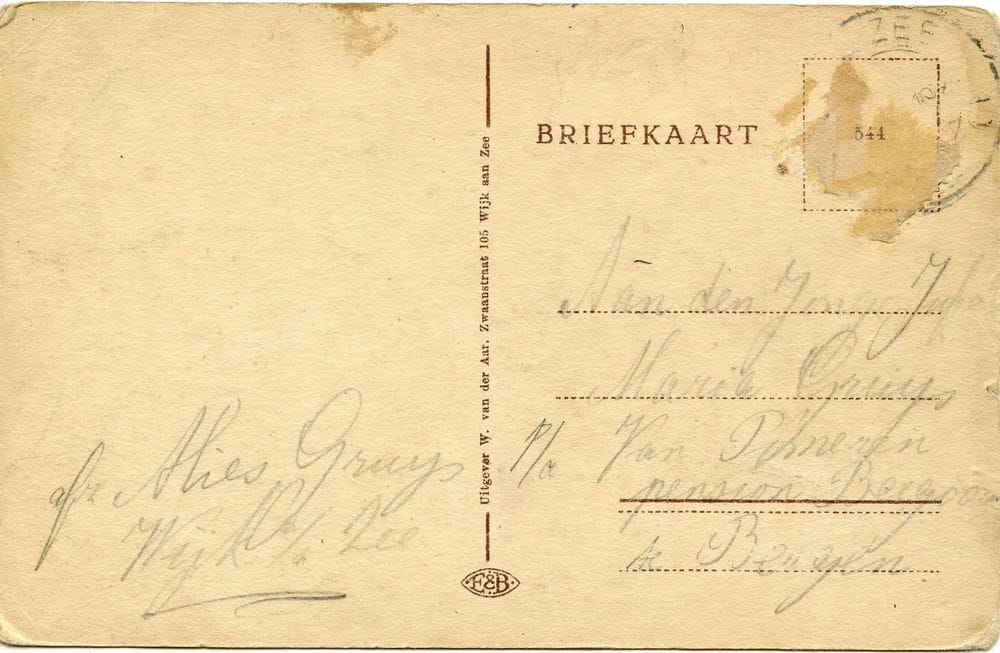 ZEE
BRIEFKAART
544
Uitgever W. van der Aar. Zwaanstraat 105 Wijk aan Zee
Aan den Jonge
Maria Gruys
P/a Van
pension
te Bergen.
afz Alies Gruys
Wijk a/ Zee
E&B